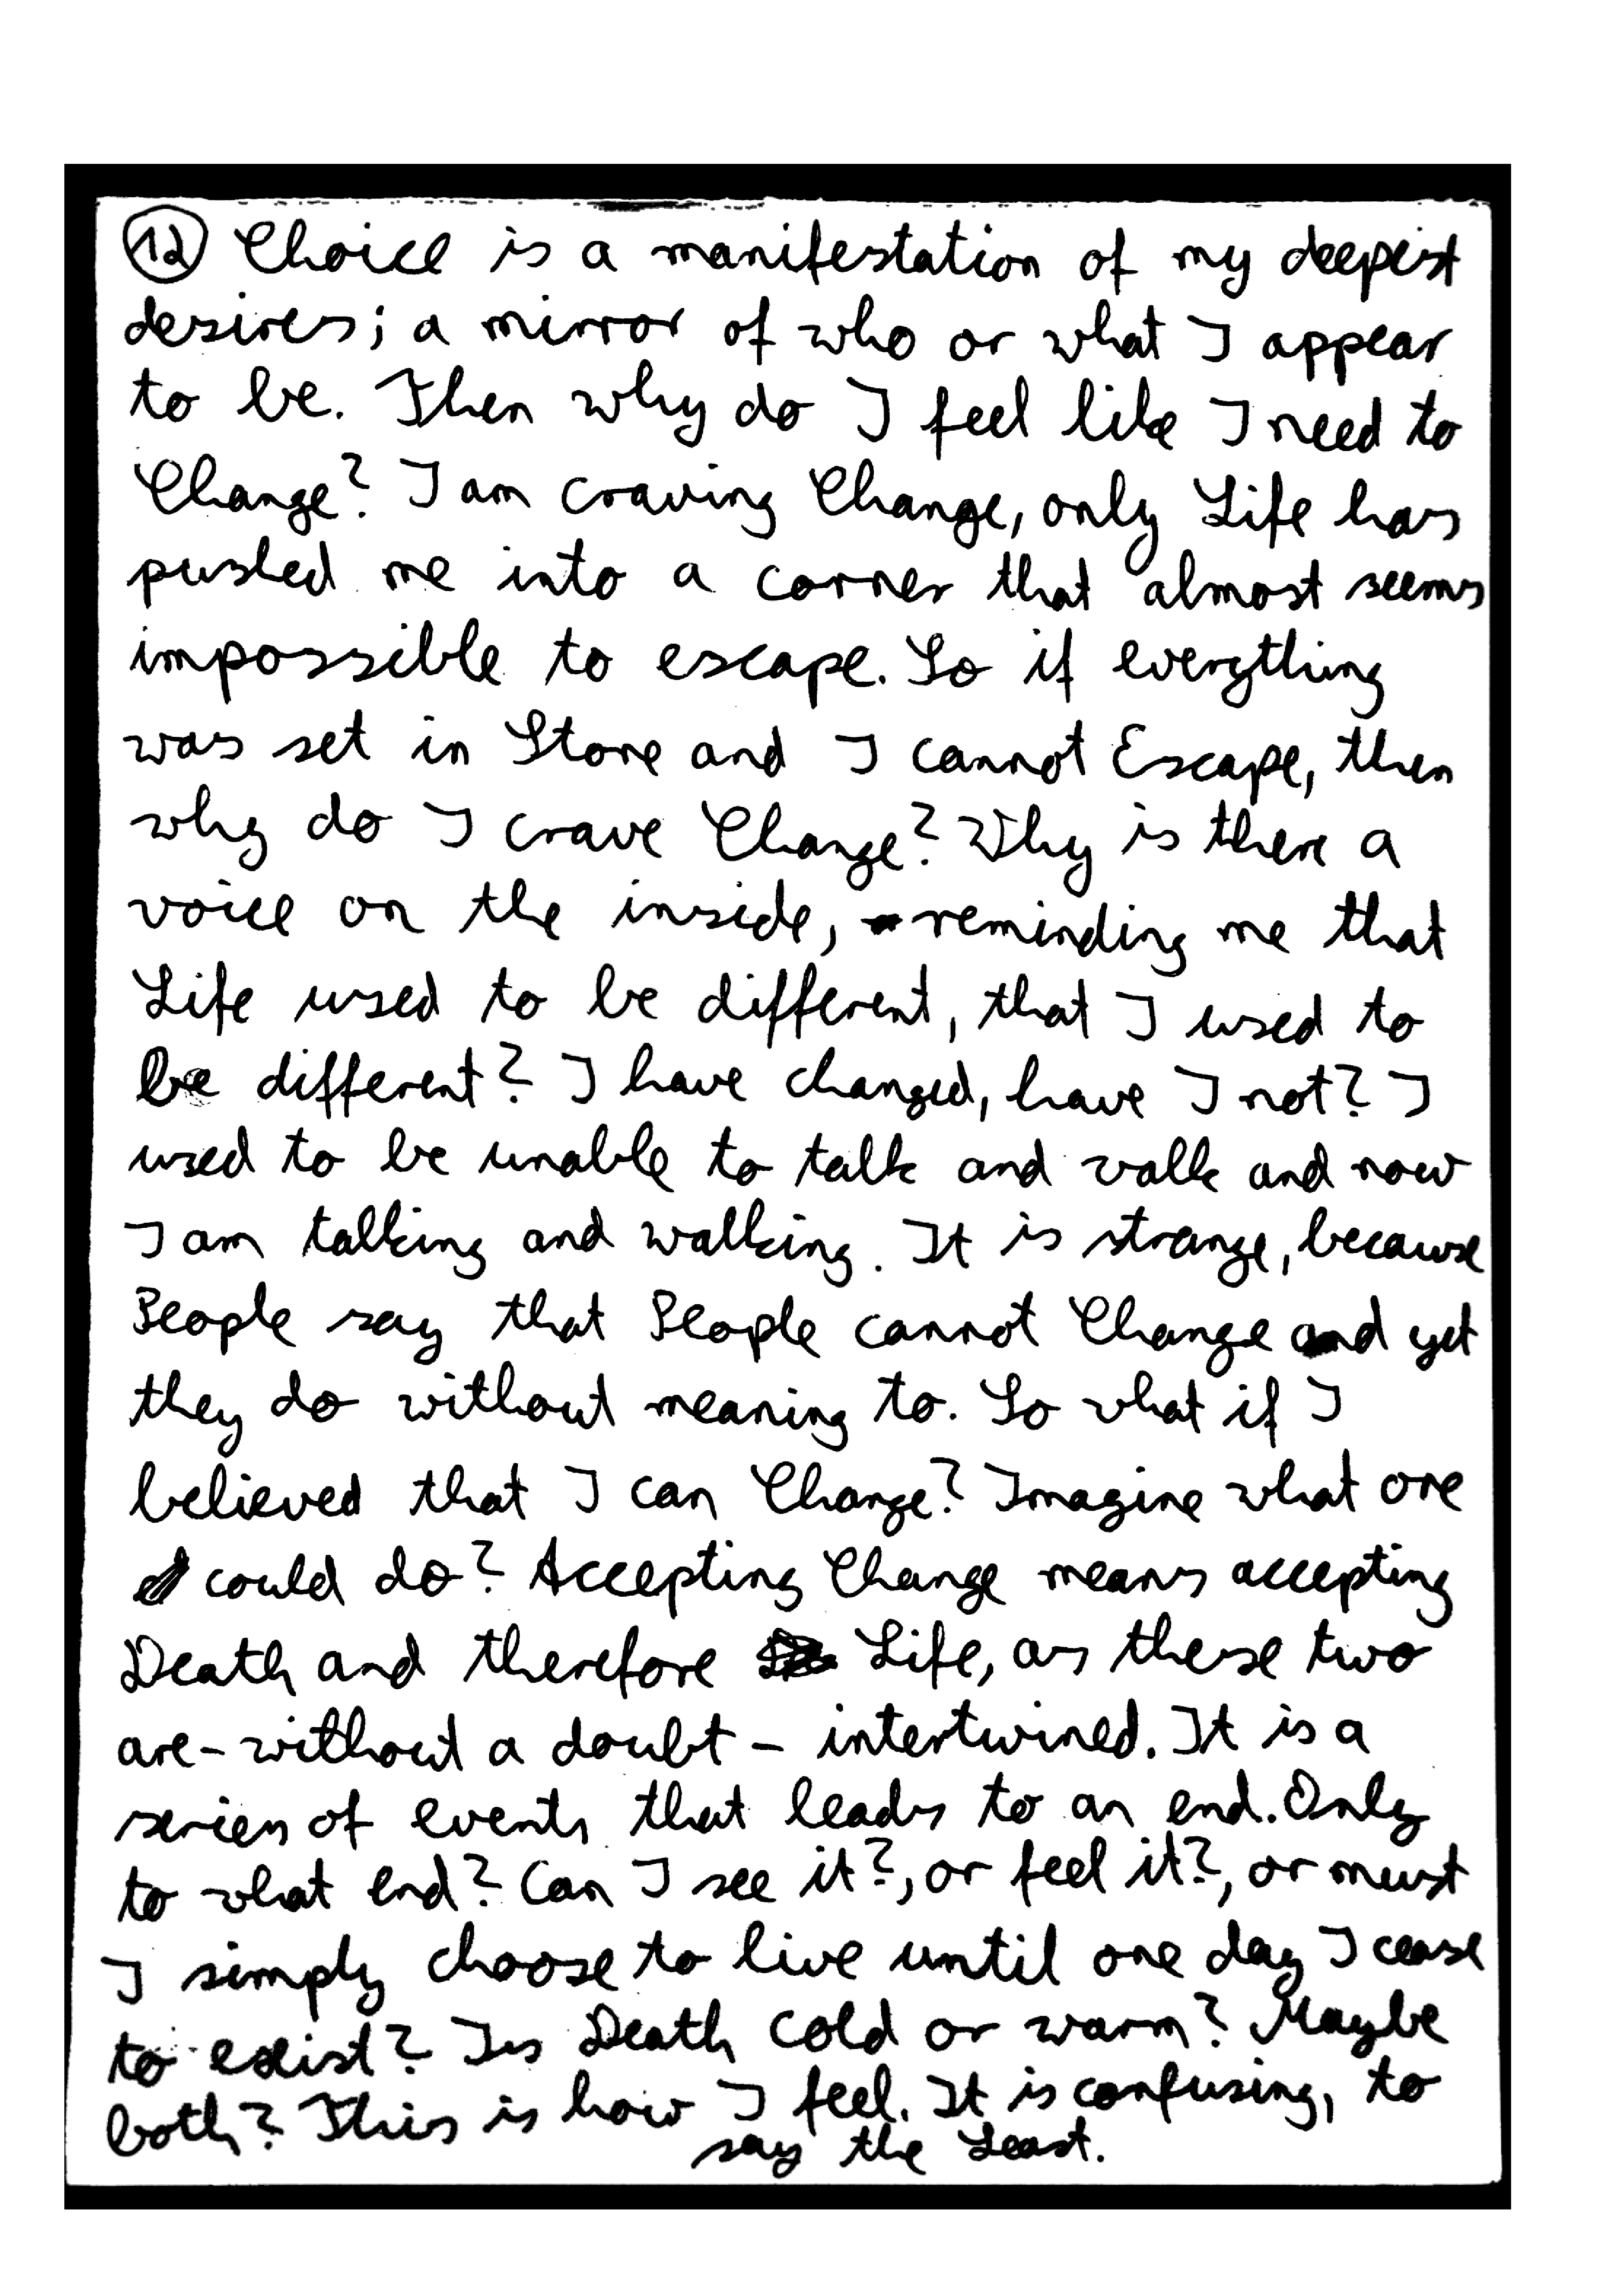 12 Choice is a manifestation of my deepest
desires; a mirror of who or what I appear
to be. Then why do I feel like I need to
Change? I am craving Change, only Life has
pushed me into a corner that almost seems
impossible to escape. So if everything
was set in Stone and I cannot Escape, then
why do I crave Change? Why is there a
voice on the inside, reminding me that
Life used to be different, that I used to
be different? I have changed, have I not? I
used to be unable to talk and walk and now
I am talking and walking. It is strange, because
People say that People cannot Change and yet
they do without meaning to. So what if I
believed that I can Change? Imagine what one
could do? Accepting Change means accepting
Death and therefore Life, as these two
are - without a doubt - intertwined. It is a
series of events that leads to an end. Only
to what end? Can I see it?, or feel it?, or must
I simply choose to live until one day I cease
to exist? Is Death Cold or warm? Maybe
both? This is how I feel. It is confusing, to
say the Least.